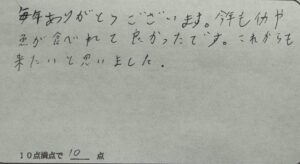 毎年ありがとうございます。今年もカや
魚が食べれて良かったです。これからも
来たいと思いました。
10点満点で 10 点